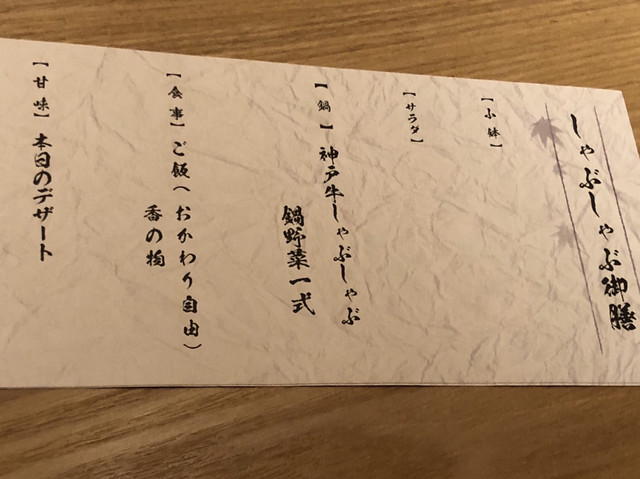 しゃぶしゃぶ御膳
【小鉢】
【サラダ】
【鍋】神戸牛しゃぶしゃぶ
鍋野菜一式
【食事】ご飯(おかわり自由)
香の物
【甘味】本日のデザート